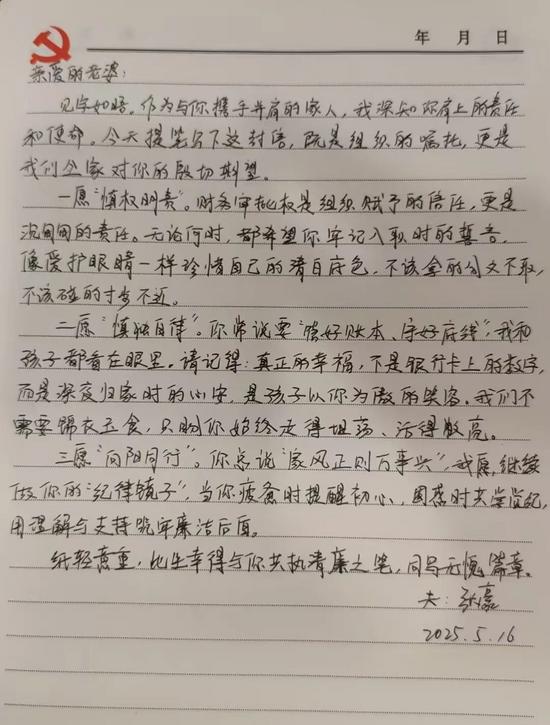 年 月 日
亲爱的老婆:
见字如晤。作为与你携手并肩的家人,我深知你肩上的责任
和使命。今天提笔写下这封信,既是组织的嘱托,更是
我们全家对你的殷切期望。
一愿“慎权明责”。财务审批权是组织赋予的信任,更是
沉甸甸的责任。无论何时,都希望你牢记入职时的誓言,
像爱护眼睛一样珍惜自己的清白底色,不该拿的分文不取,
不该碰的寸步不近。
二愿“慎独自律”。你常说要“管好账本、守好底线”,我和
孩子都看在眼里。请记得:真正的幸福,不是银行卡上的数字,
而是深夜归家时的心安,是孩子以你为傲的笑容。我们不
需要锦衣玉食,只盼你始终走得坦荡、活得敞亮。
三愿“向阳同行”。你总说“家风正则万事兴”,我愿继续
做你的“纪律镜子”,当你疲惫时提醒初心,困惑时共学党纪,
用理解与支持筑牢廉洁后盾。
纸轻意重,此生幸得与你共执清廉之笔,同写无愧篇章。
夫:张
2025.5.16